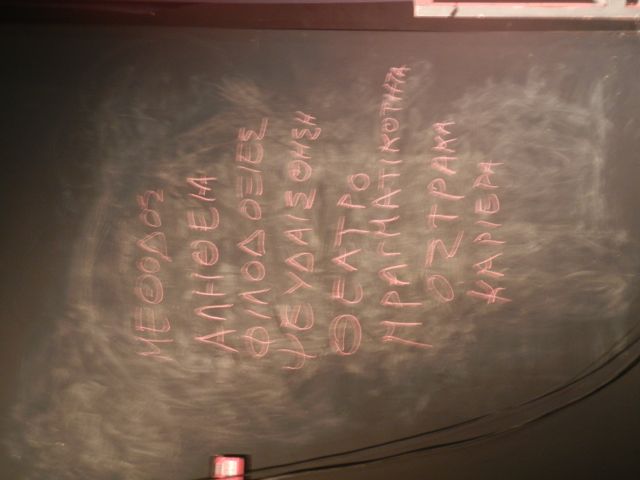 ΜΕΘΟΔΟΣ
ΑΛΗΘΕΙΑ
ΦΙΛΟΔΟΞΙΕΣ
ΨΕΥΔΑΙΣΘΗΣΗ
ΘΕΑΤΡΟ
ΠΡΑΓΜΑΤΙΚΟΤΗΤΑ
ΟΣΤΡΑΚΑ
ΚΑΡΙΕΡΑ